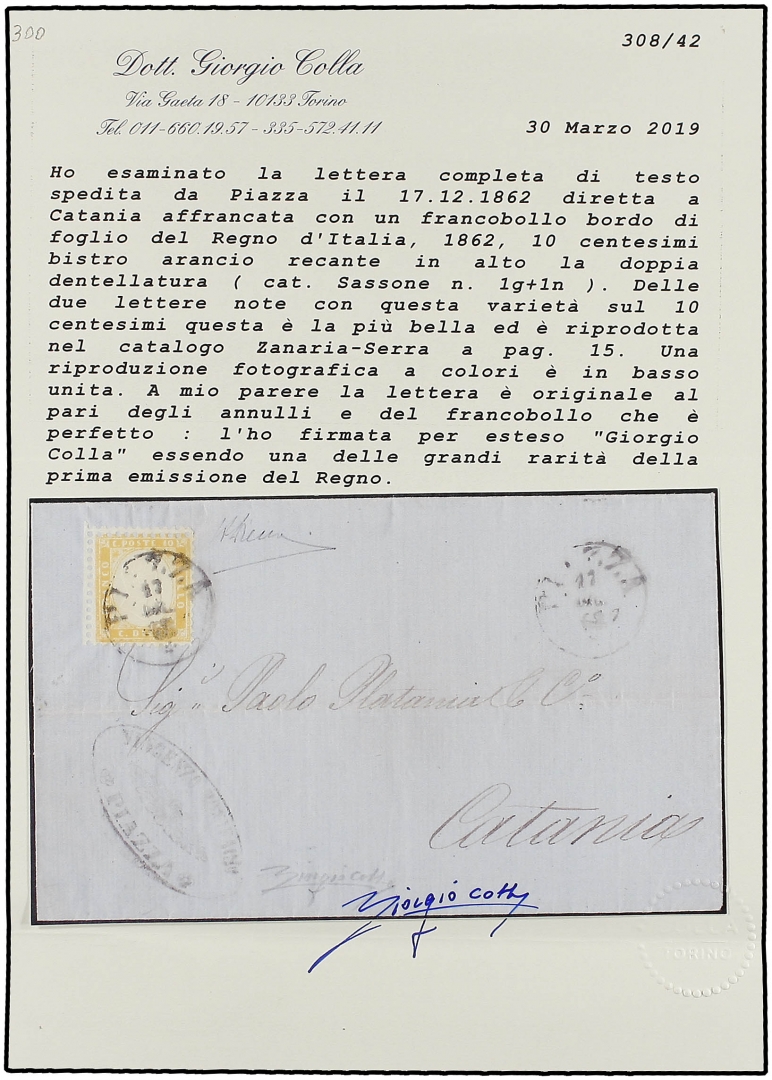 300
308/42
Dott. Giorgio Colla
Via Gaeta 18 - 10133 Torino
Tel. 011-660.19.57 - 335-572.41.11
30 Marzo 2019
Ho esaminato la lettera completa di testo
spedita da Piazza il 17.12.1862 diretta a
Catania affrancata con un francobollo bordo di
foglio del Regno d'Italia, 1862, 10 centesimi
bistro arancio recante in alto la doppia
dentellatura ( cat. Sassone n. 1g+1n ). Delle
due lettere note con questa varietà sul 10
centesimi questa è la più bella ed è riprodotta
nel catalogo Zanaria-Serra a pag. 15. Una
riproduzione fotografica a colori è in basso
unita. A mio parere la lettera è originale al
pari degli annulli e del francobollo che è
perfetto : l'ho firmata per esteso "Giorgio
Colla" essendo una delle grandi rarità della
prima emissione del Regno.
C. POSTE 10
PIAZZA
17
PIAZZA
17
Sig.ri Paolo Platania & C.o
PIAZZA
Catania
Giorgio Colla
Giorgio Colla
TORINO